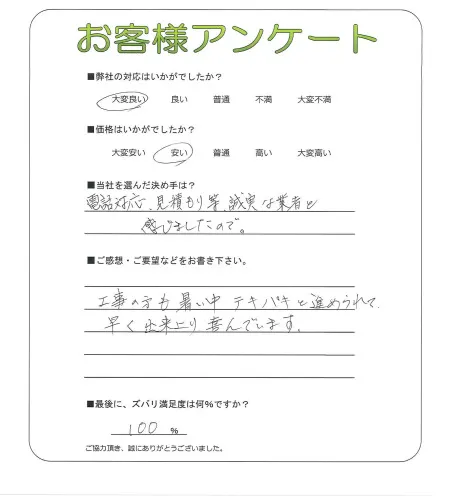 お客様アンケート
■弊社の対応はいかがでしたか？
大変良い 良い 普通 不満 大変不満
■価格はいかがでしたか？
大変安い 安い 普通 高い 大変高い
■当社を選んだ決め手は？
電話対応、見積もり等、誠実な業者と
感じましたので。
■ご感想・ご要望などをお書き下さい。
工事の方も暑い中テキパキと進められて、
早く出来上り喜んでいます。
■最後に、ズバリ満足度は何%ですか？
100 %
ご協力頂き、誠にありがとうございました。